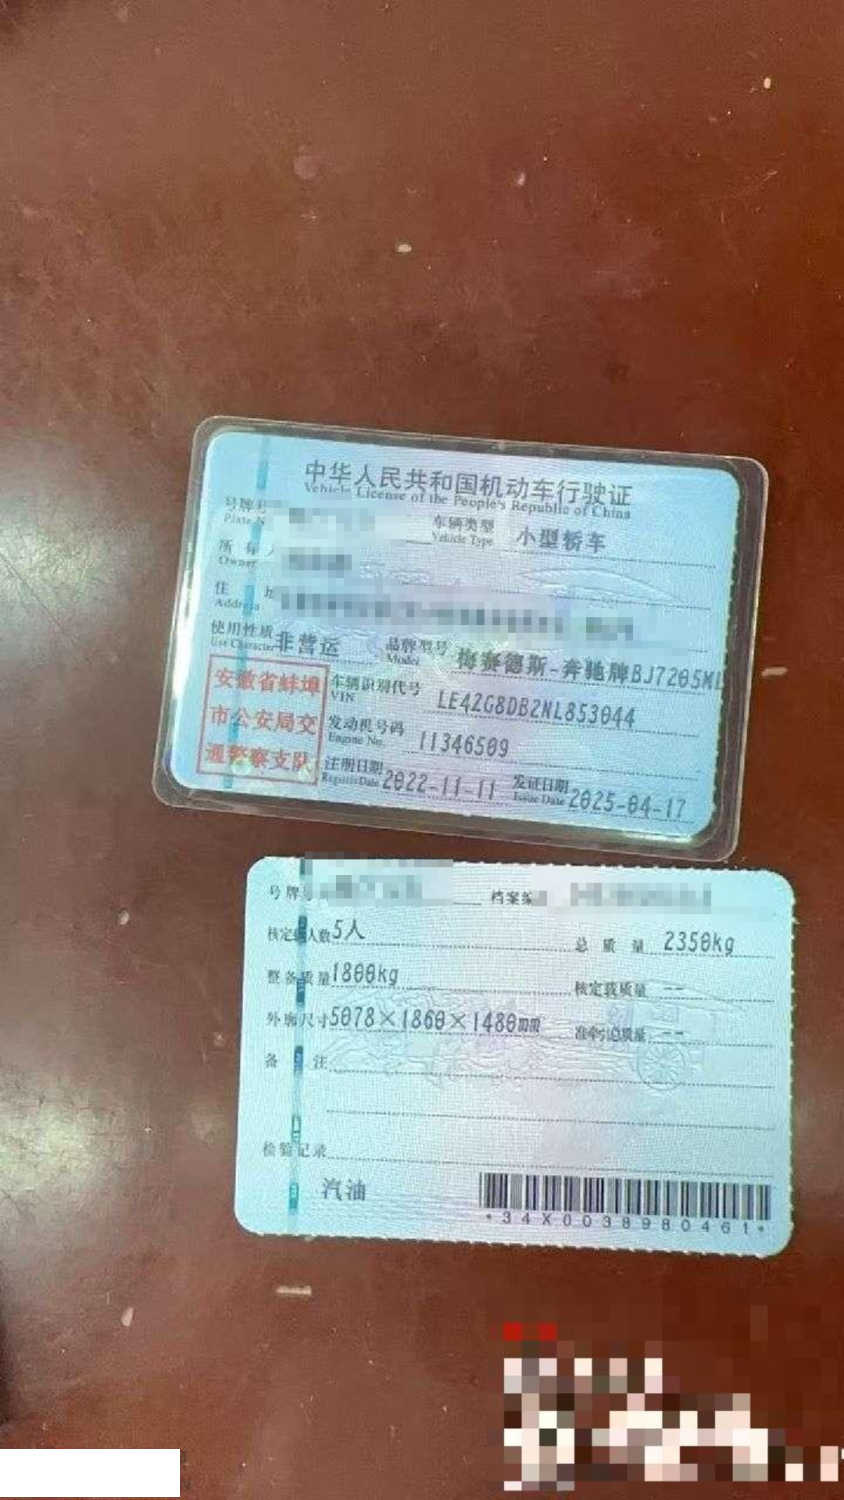 中华人民共和国机动车行驶证
Vehicle License of the People's Republic of China
号牌号
Plate N
车辆类型 小型轿车
Vehicle Type
所有人
Owner
住 址
Address
使用性质 非营运 品牌型号 梅赛德斯-奔驰牌BJ7205ML
Use Character Model
安徽省蚌埠
市公安局交
通警察支队
车辆识别代号 LE42G8DB2NL853044
VIN
发动机号码 11346509
Engine No.
注册日期 2022-11-11 发证日期 2025-04-17
Register Date Issue Date
号牌号 档案编
核定载人数 5人 总质量 2350kg
整备质量 1800kg 核定载质量 --
外廓尺寸 5078×1860×1480mm 准牵引总质量 --
备 注
检验记录
汽油
*34X0038980461*